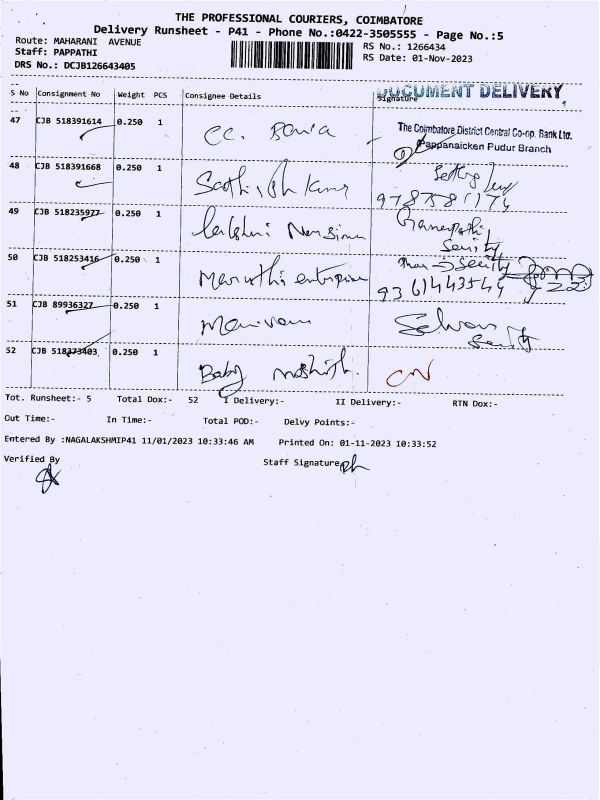 THE PROFESSIONAL COURIERS, COIMBATORE
Delivery Runsheet - P41 - Phone No.:0422-3505555 - Page No.:5
Route: MAHARANI AVENUE
RS No.: 1266434
Staff: PAPPATHI
RS Date: 01-Nov-2023
DRS No.: DCJB126643405
DOCUMENT DELIVERY
S No Consignment No Weight PCS Consignee Details Signature
47 CJB 518391614 0.250 1
The Coimbatore District Central Co-op. Bank Ltd.
Pappanaicken Pudur Branch
48 CJB 518391668 0.250 1 Sathish Kumar
49 CJB 518235977 0.250 1
50 CJB 518253416 0.250 1 Maruthi enterprise
9361443544
51 CJB 89936327 0.250 1
52 CJB 518373403 0.250 1 Baby
Tot. Runsheet:- 5 Total Dox:- 52 I Delivery:- II Delivery:- RTN Dox:-
Out Time:- In Time:- Total POD:- Delvy Points:-
Entered By :NAGALAKSHMIP41 11/01/2023 10:33:46 AM Printed On: 01-11-2023 10:33:52
Verified By Staff Signature